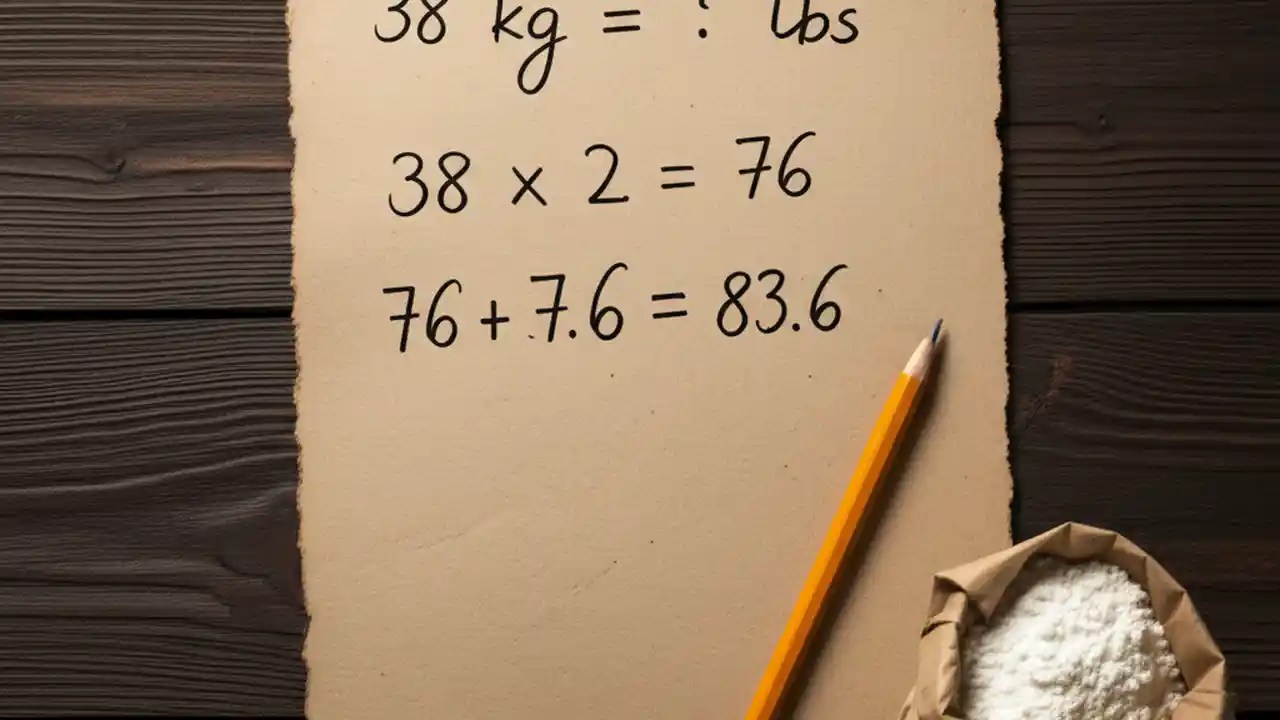 38 kg = ? lbs
38 × 2 = 76
76 + 7.6 = 83.6